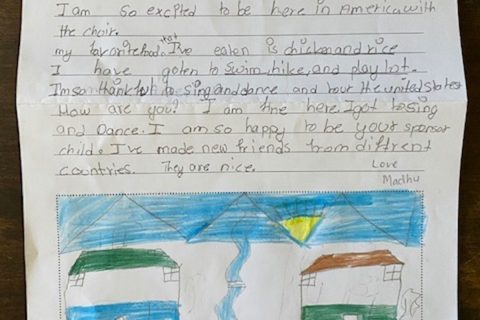 I am so excpted to be here in America with
the choir.
my favorite food that I've eaten is chicken and rice
I have goten to swim, hike, and play lot.
Im so thankful to sing and dance and tour the united states
How are you? I am fine here. I got to sing
and Dance. I am so happy to be your sponsor
child. I've made new friends from diffrent
countries. They are nice.
Love
Madhu